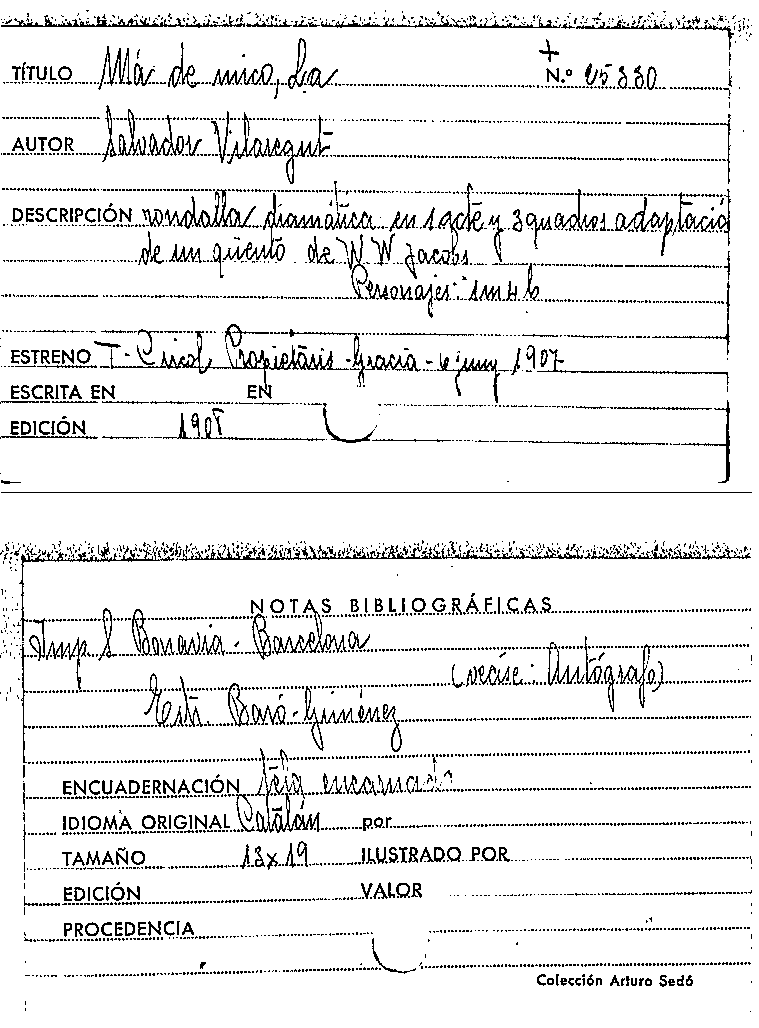 TÍTULO Má de mico, La + N.º 65330
AUTOR Salvador Vilaregut
DESCRIPCIÓN rondalla dramática en 1 acte y 3 quadros adaptació
de un qüento de W W Jacobs
Personajes: 1m 4 h
ESTRENO T. Circol Propietaris - Gracia - 6 juny 1907
ESCRITA EN EN
EDICIÓN 1908
NOTAS BIBLIOGRÁFICAS
Imp S Bonavia - Barcelona
(veáse: Autógrafo)
Estr. Baró-Giménez
ENCUADERNACIÓN tela encarnada
IDIOMA ORIGINAL Catalán por
TAMAÑO 13x19 ILUSTRADO POR
EDICIÓN VALOR
PROCEDENCIA
Colección Arturo Sedó